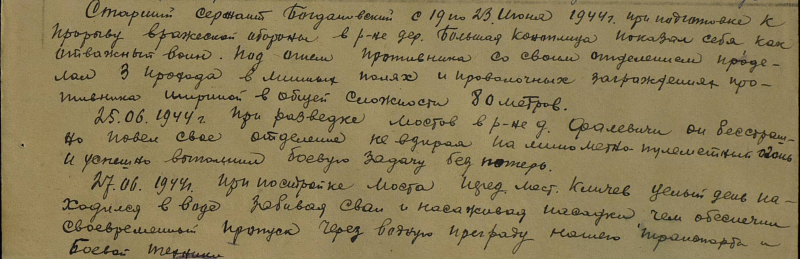 Старший сержант Богдановский с 19 по 23 Июня 1944 г. при подготовке к
прорыву вражеской обороны в р-не дер. Большая Конплица показал себя как
отважный воин. Под огнем противника со своим отделением проде-
лал 3 прохода в минных полях и проволочных заграждениях про-
тивника шириной в общей сложности 80 метров.
25.06.1944 г. при разведке мостов в р-не д. Фалевичи он бесстраш-
но повел свое отделение не взирая на минометно пулеметный огонь
и успешно выполнил боевую задачу без потерь.
27.06.1944 г. при постройке моста перед мест. Кличев целый день на-
ходился в воде забивая сваи и насаживая насадки чем обеспечил
своевременный пропуск через водную преграду нашего транспорта и
боевой техники